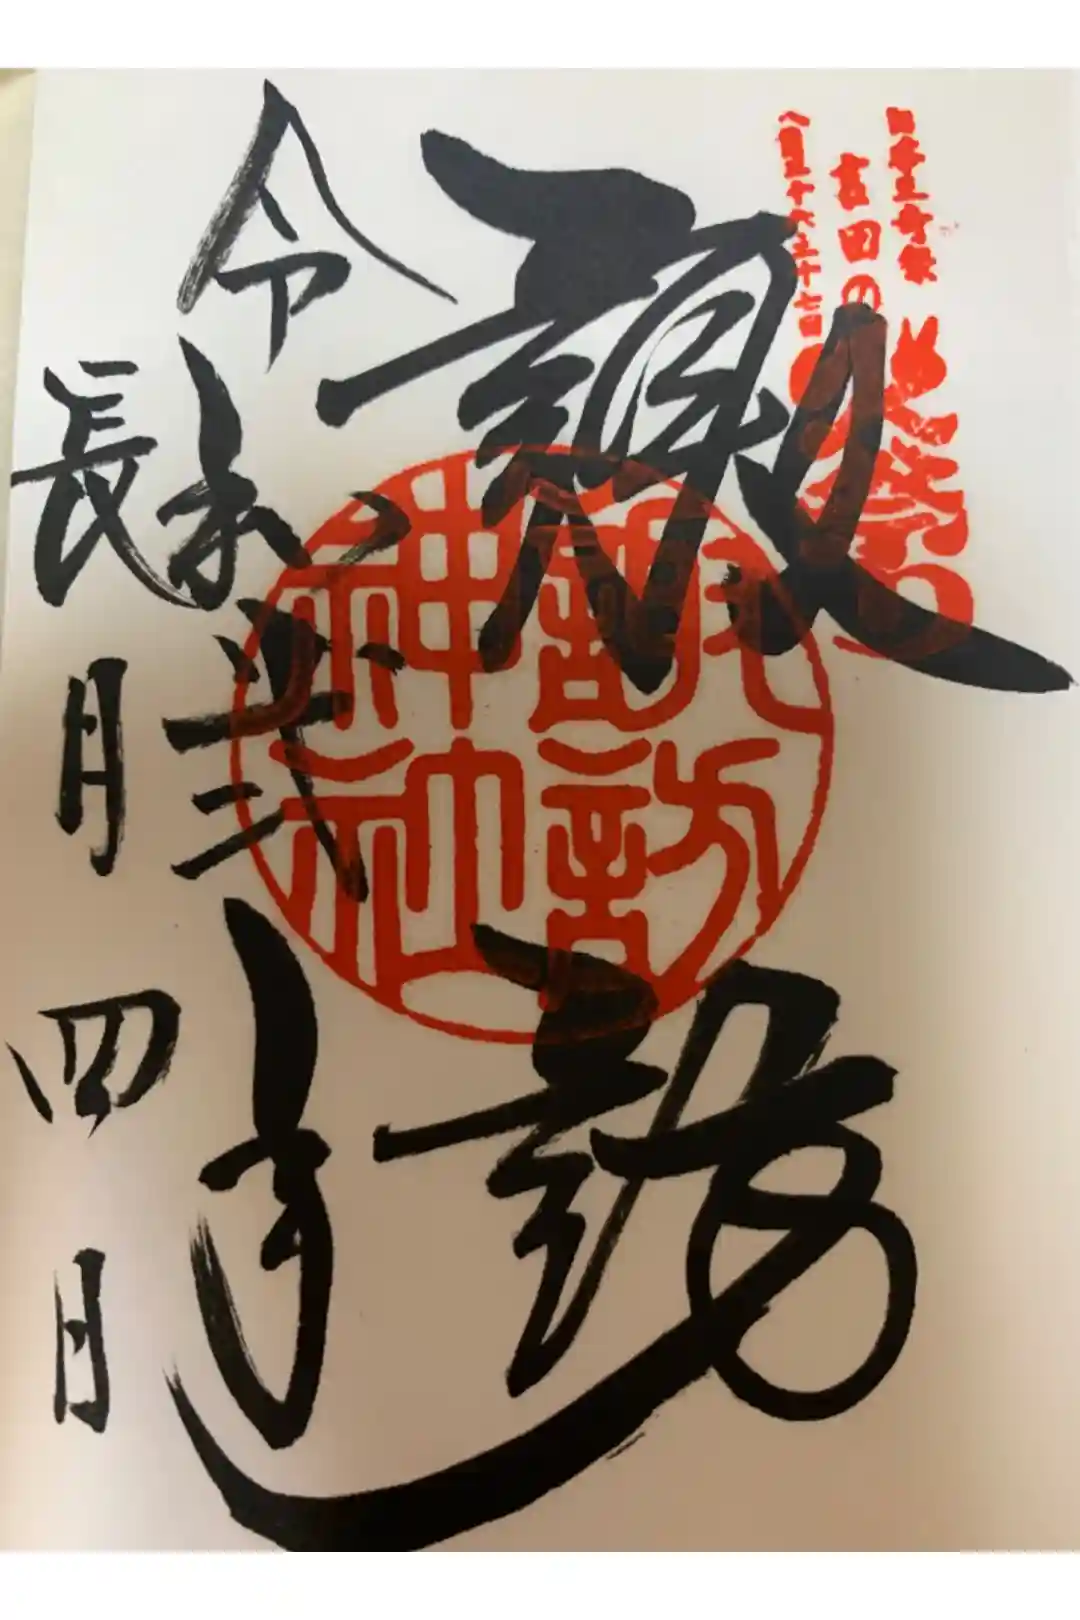 日本三奇祭
吉田の火祭り
八月二十六二十七日
諏訪
諏訪神社
令和弐年
長月四日